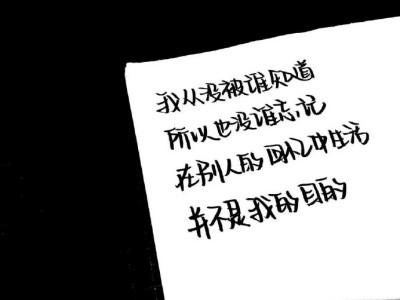 我从没被谁知道
所以也没谁忘记
在别人的回忆中生活
并不是我的目的